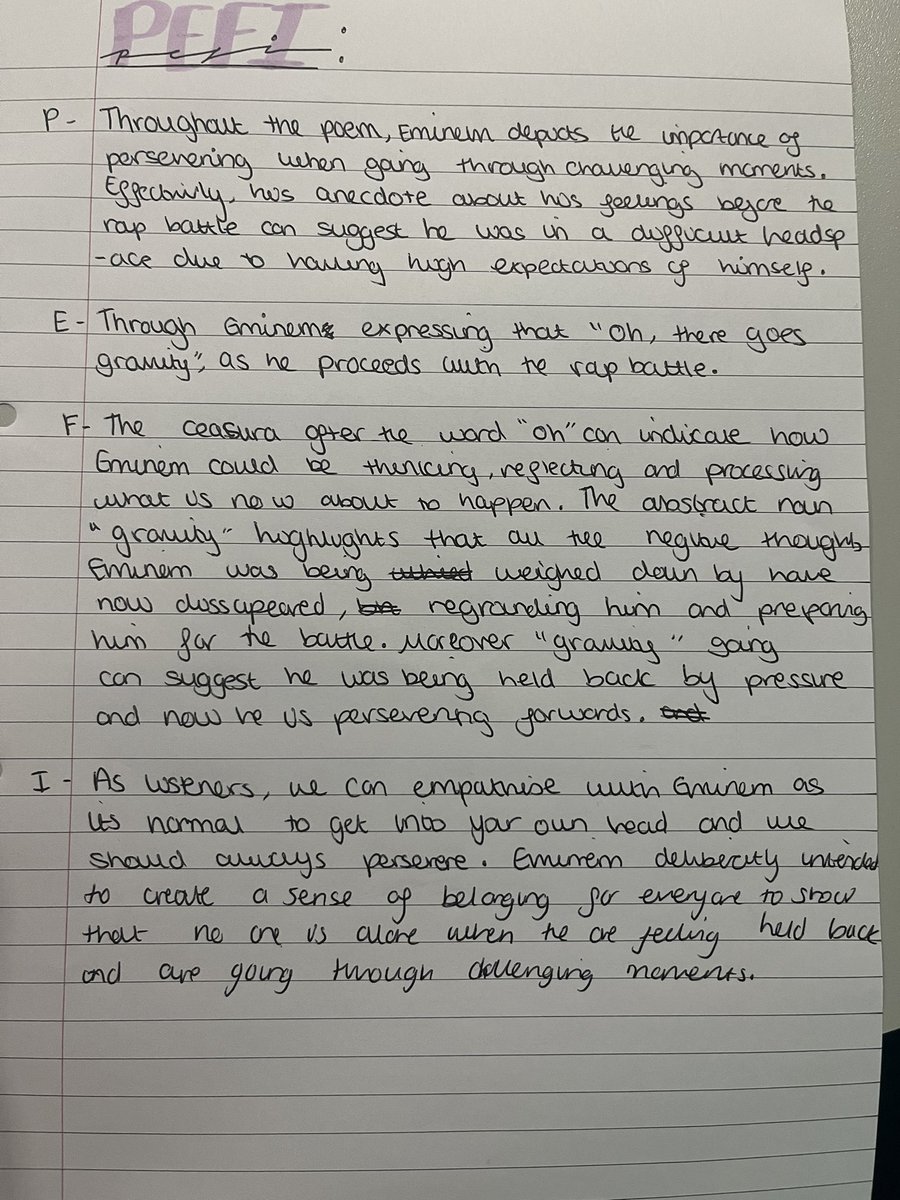 PEFI:
P - Throughout the poem, Eminem depicts the importance of
persevering when going through challenging moments.
Effectively, his anecdote about his feelings before the
rap battle can suggest he was in a difficult headsp
-ace due to having high expectations of himself.
E - Through Eminem expressing that "Oh, there goes
gravity", as he proceeds with the rap battle.
F - The ceasura after the word "oh" can indicate how
Eminem could be thinking, reflecting and processing
what is now about to happen. The abstract noun
"gravity" highlights that all the negative thoughts
Eminem was being weighed down by have
now dissapeared, regrounding him and preparing
him for the battle. Moreover "gravity" going
can suggest he was being held back by pressure
and now he is persevering forwards.
I - As listeners, we can empathise with Eminem as
its normal to get into your own head and we
should always persevere. Eminem deliberatly intended
to create a sense of belonging for everyone to show
that no one is alone when the are feeling held back
and are going through challenging moments.